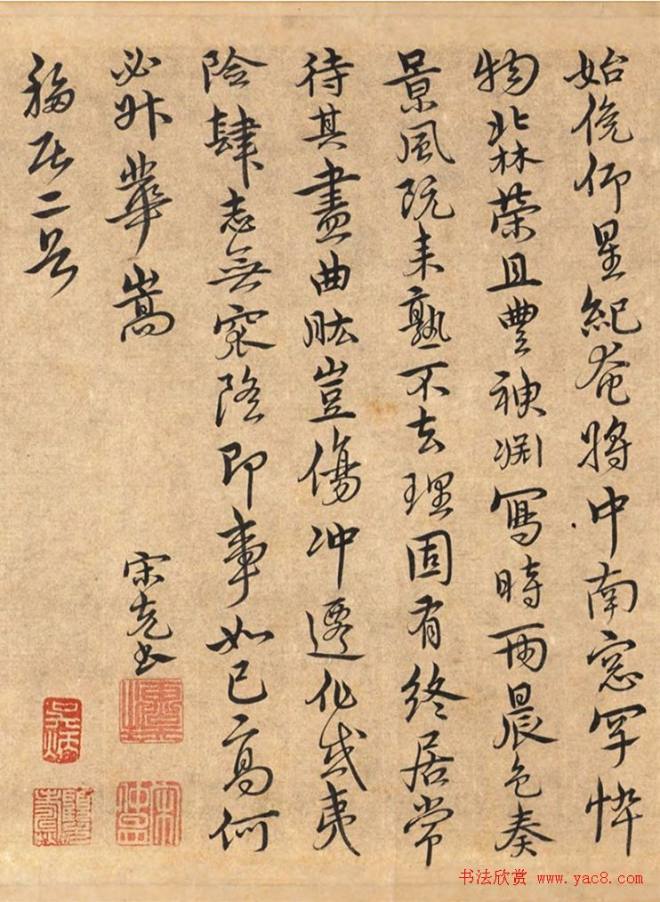 始俛仰星紀奄將中南窓罕悴
物北林榮且豊神渊寫時雨晨色奏
景風既来熟不去理固有終居常
待其盡曲肱豈傷冲遷化或夷
險肆志無窊隆即事如已高何
必升華嵩
宋克書
移居二首
书法欣赏 www.yac8.com